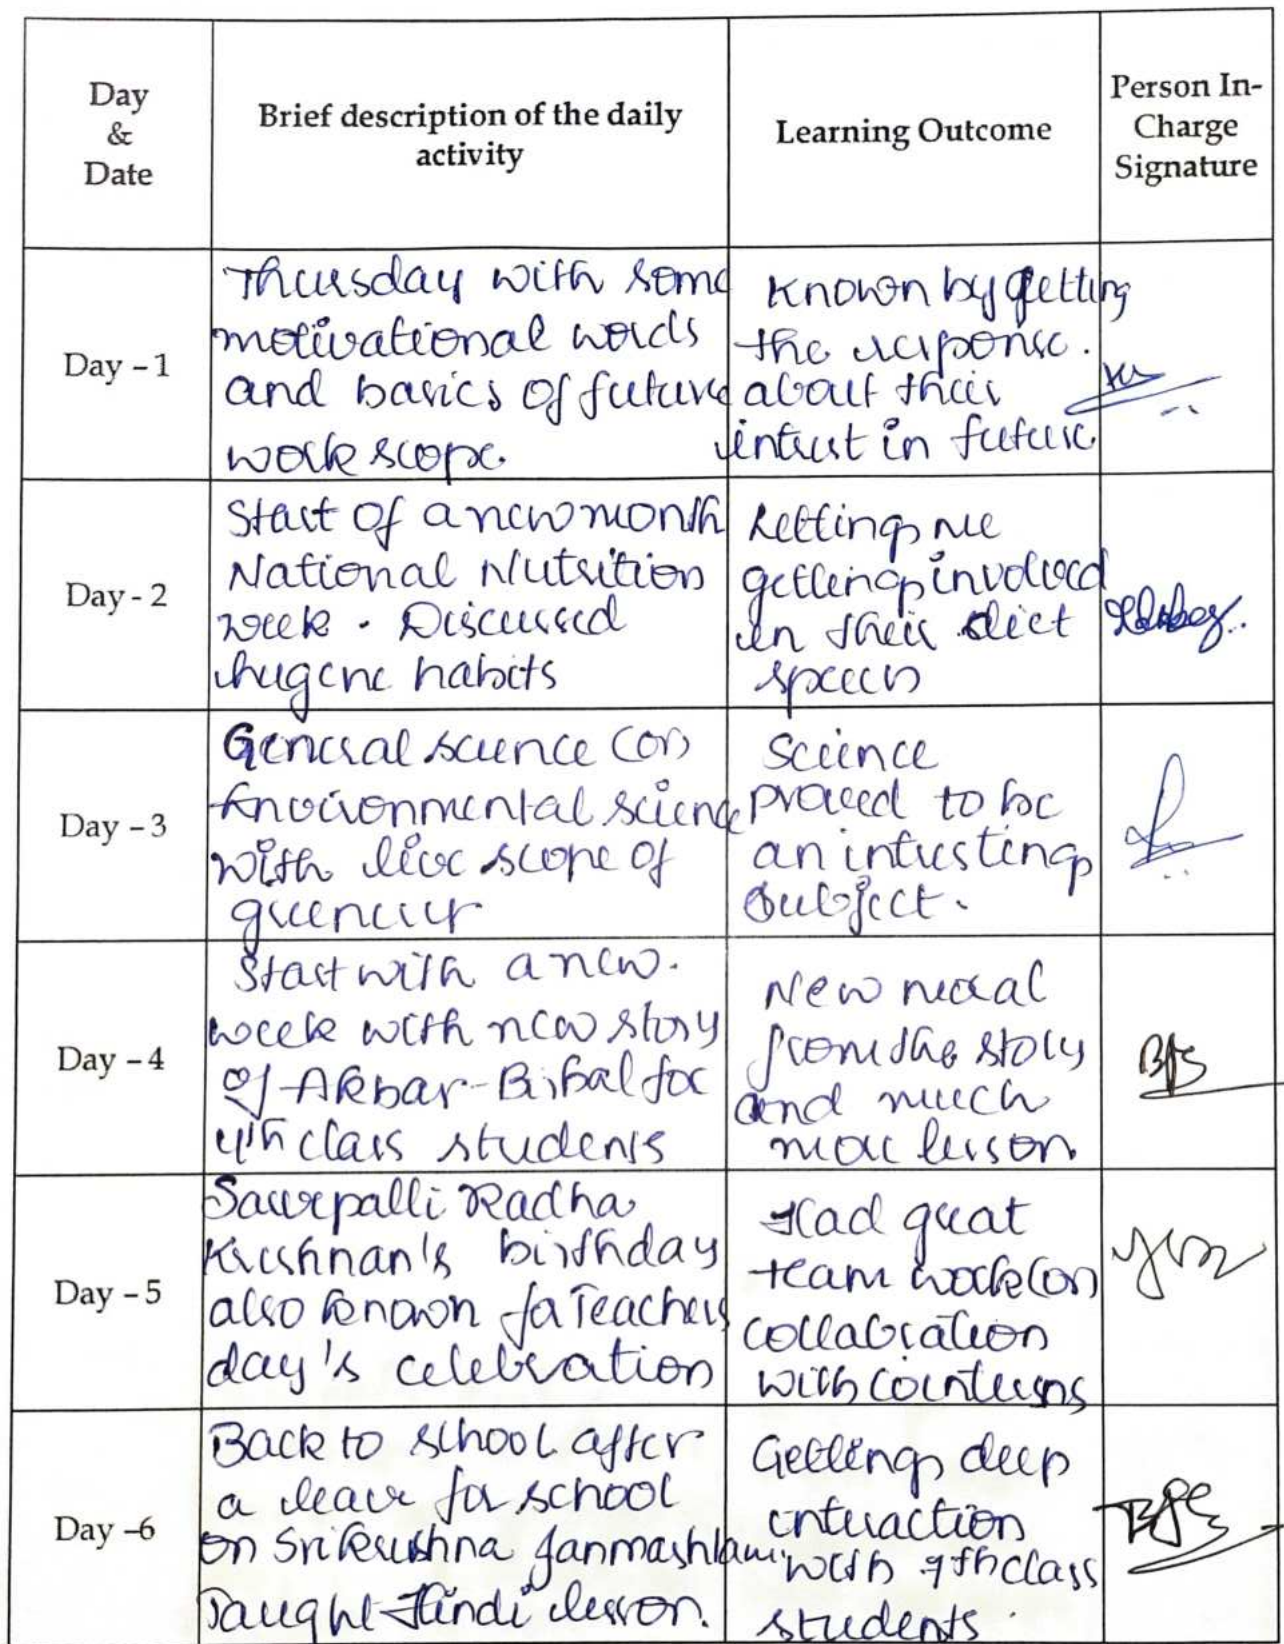 Day
&
Date
Brief description of the daily
activity
Learning Outcome
Person In-
Charge
Signature
Day - 1
Thursday with some
motivational words
and basics of future
work scope.
Known by getting
the response.
about their
intrest in future
Day - 2
Start of a new month
National Nutrition
week. Discussed
hygene habits
Letting me
getting involved
in their diet
speech
Day - 3
General science (or)
Environmental science
with live scope of
Science
proved to be
an intresting
subject.
Day - 4
Start with a new.
week with new story
of Akbar-Birbal for
4th class students
New moral
from the story
and much
more lesson.
Day - 5
Sarvepalli Radha
Krishnan's birthday
also known fa Teachers
day's celebration
Had great
team work (or)
collabration
with cointerns
Day -6
Back to school after
a leave for school
on Sri Krushna Janmashtami
Taught Hindi lesson.
Getting deep
interaction
with 9th class
students.